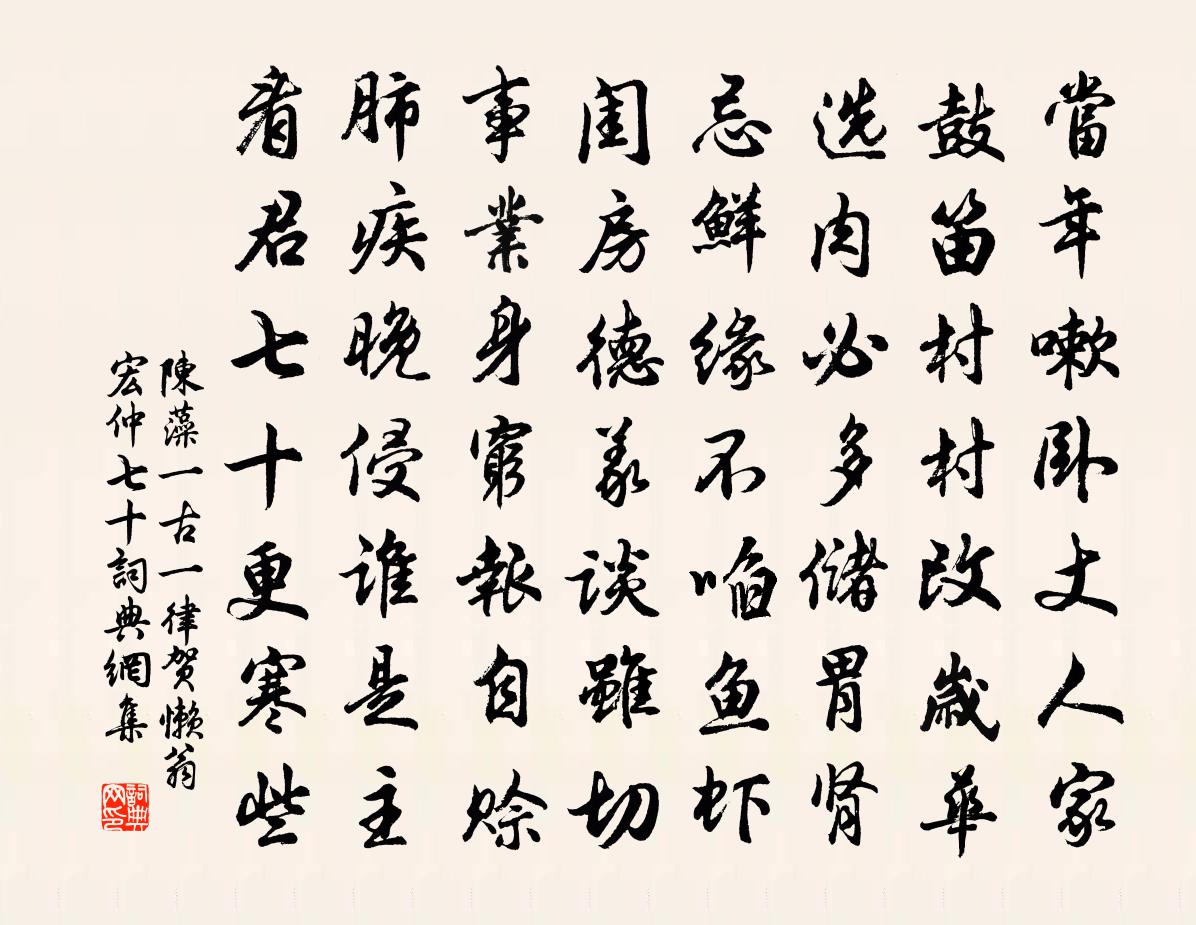 當年嗽卧丈人家
鼓笛村村改歲華
选肉必多儲胃肾
忌鮮缘不啗鱼虾
闺房德義談雖切
事業身窮報自赊
肺疾晚侵谁是主
看君七十更寒些
陳藻一古一律贺懒翁
宏仲七十詞典網集
詞典网印